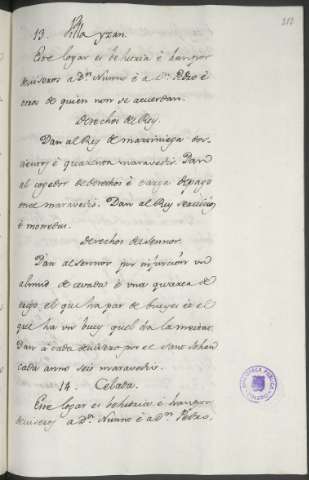 212
13. Villa yzan.
Este logar es behetria è han por
deviseros a Dn. Nunno è a Dn. Pdro è
otros de quien non se acuerdan.
Derechos del Rey.
Dan al Rey de martiniega dos-
cientos è quarenta maravedis. Dan
al cogedor de derechos è carta de pago
once maravedis. Dan al Rey servicios
è monedas.
Derechos del Sennor.
Dan al sennor por infurcion un
almud de cevada è una quarta de
trigo, el que ha par de bueyes è el
que ha un buey quel da la meitat.
Dan à cada devisero por el Sant Johan
cada anno seis maravedis.
14. Celada.
Este logar es behetria è han por
deviseros a Dn. Nunno è a Dn. Pedro.
BIBLIOTECA PUBLICA
TOLEDO